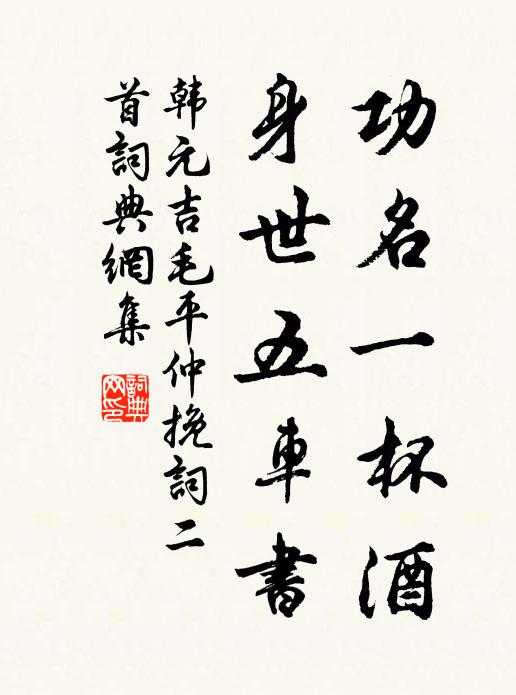 功名一杯酒
身世五車書
韩元吉毛平仲挽詞二
首詞典網集
詞典網印